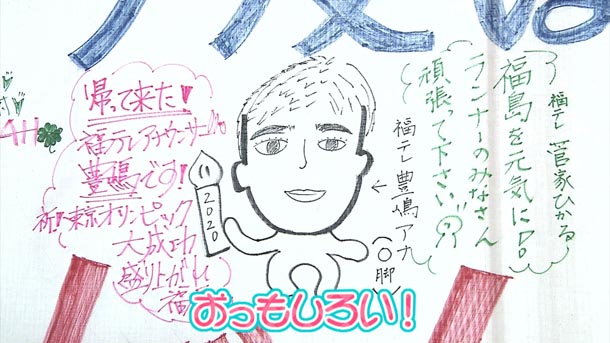 帰って来た!
福テレアナウンサーの
豊嶋です!
祝!東京オリンピック
大成功
盛り上がれ
福
2020
福テレ 豊嶋アナ
(O脚)
福テレ 菅家ひかる
福島を元気に!
ランナーのみなさん
頑張って下さい
おっもしろい!